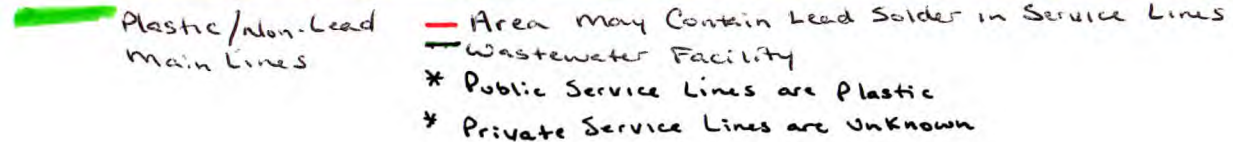 Plastic/Non-Lead
Main Lines
Area May Contain Lead Solder in Service Lines
Wastewater Facility
* Public Service Lines are Plastic
* Private Service Lines are Unknown